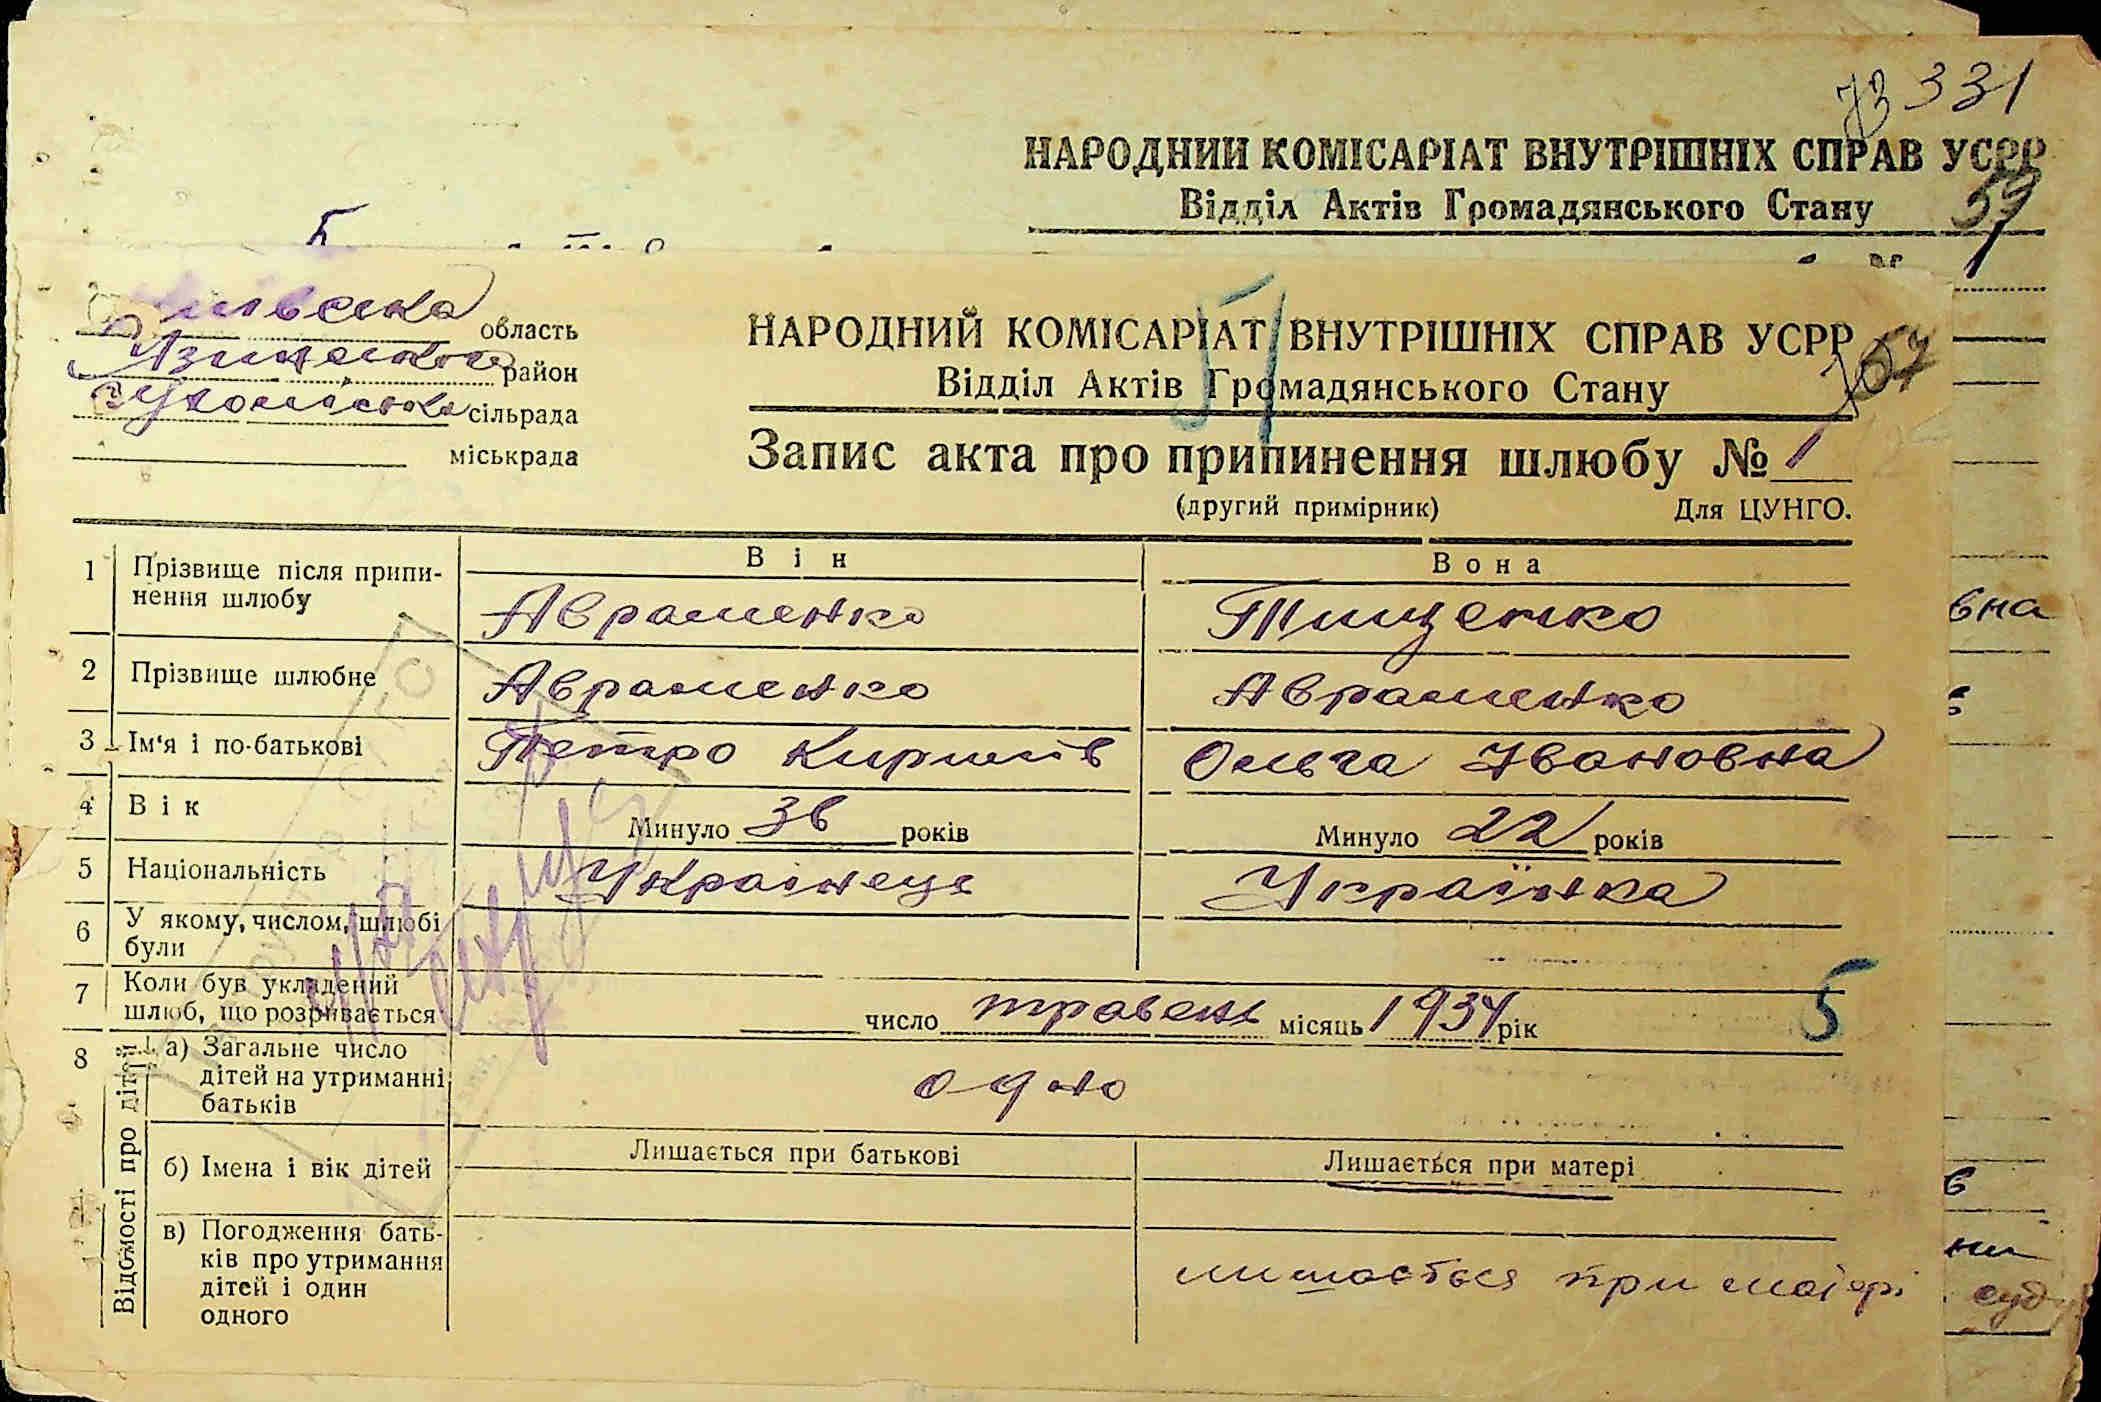 73 331
НАРОДНИЙ КОМІСАРІАТ ВНУТРІШНІХ СПРАВ УСРР
Відділ Актів Громадянського Стану
59
Київська область
район
сільрада
міськрада
НАРОДНИЙ КОМІСАРІАТ ВНУТРІШНІХ СПРАВ УСРР
Відділ Актів Громадянського Стану
51
67
Запис акта про припинення шлюбу № 1
(другий примірник) Для ЦУНГО.
Він Вона
1 Прізвище після припи-
нення шлюбу
Авраменко Тищенко
2 Прізвище шлюбне Авраменко Авраменко
3 Ім'я і по-батькові Петро Кирилів Ольга Івановна
4 Вік Минуло 36 років Минуло 22 років
5 Національність Українець Українка
6 У якому, числом, шлюбі
були
7 Коли був укладений
шлюб, що розривається
число травень місяць 1934 рік
5
8 Відомості про дітей
а) Загальне число
дітей на утриманні
батьків
одно
б) Імена і вік дітей Лишається при батькові Лишається при матері
в) Погодження бать-
ків про утримання
дітей і один
одного
лишається при матері
вна
в
ни
суду